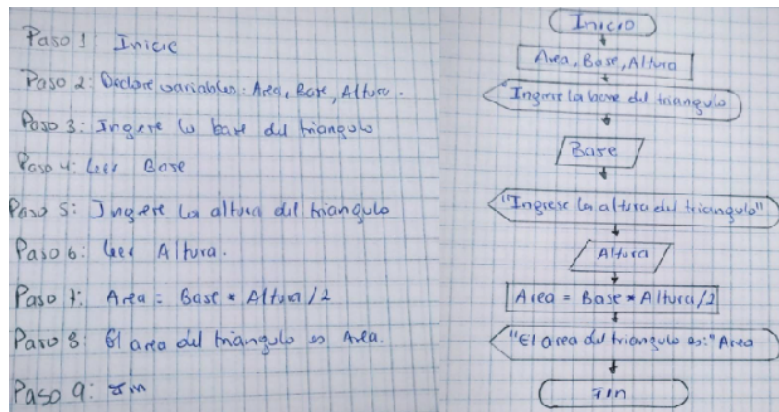 Paso 1: Inicie
Paso 2: Declare variables: Area, Base, Altura.
Paso 3: Ingrese la base del triangulo
Paso 4: Leer Base
Paso 5: Ingrese la altura del triangulo
Paso 6: Leer Altura.
Paso 7: Area = Base * Altura/2
Paso 8: El area del triangulo es Area.
Paso 9: Fin
Inicio
Area, Base, Altura
"Ingrese la base del triangulo
Base
"Ingrese la altura del triangulo"
Altura
Area = Base * Altura/2
"El area del triangulo es:" Area
Fin